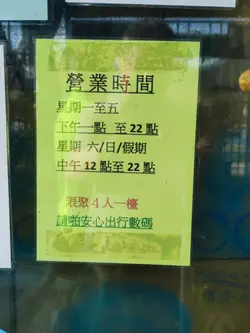 營業時間
星期一至五
下午一點 至 22 點
星期 六/日/假期
中午 12 點至 22 點
限聚 4 人一檯
請啪安心出行數碼